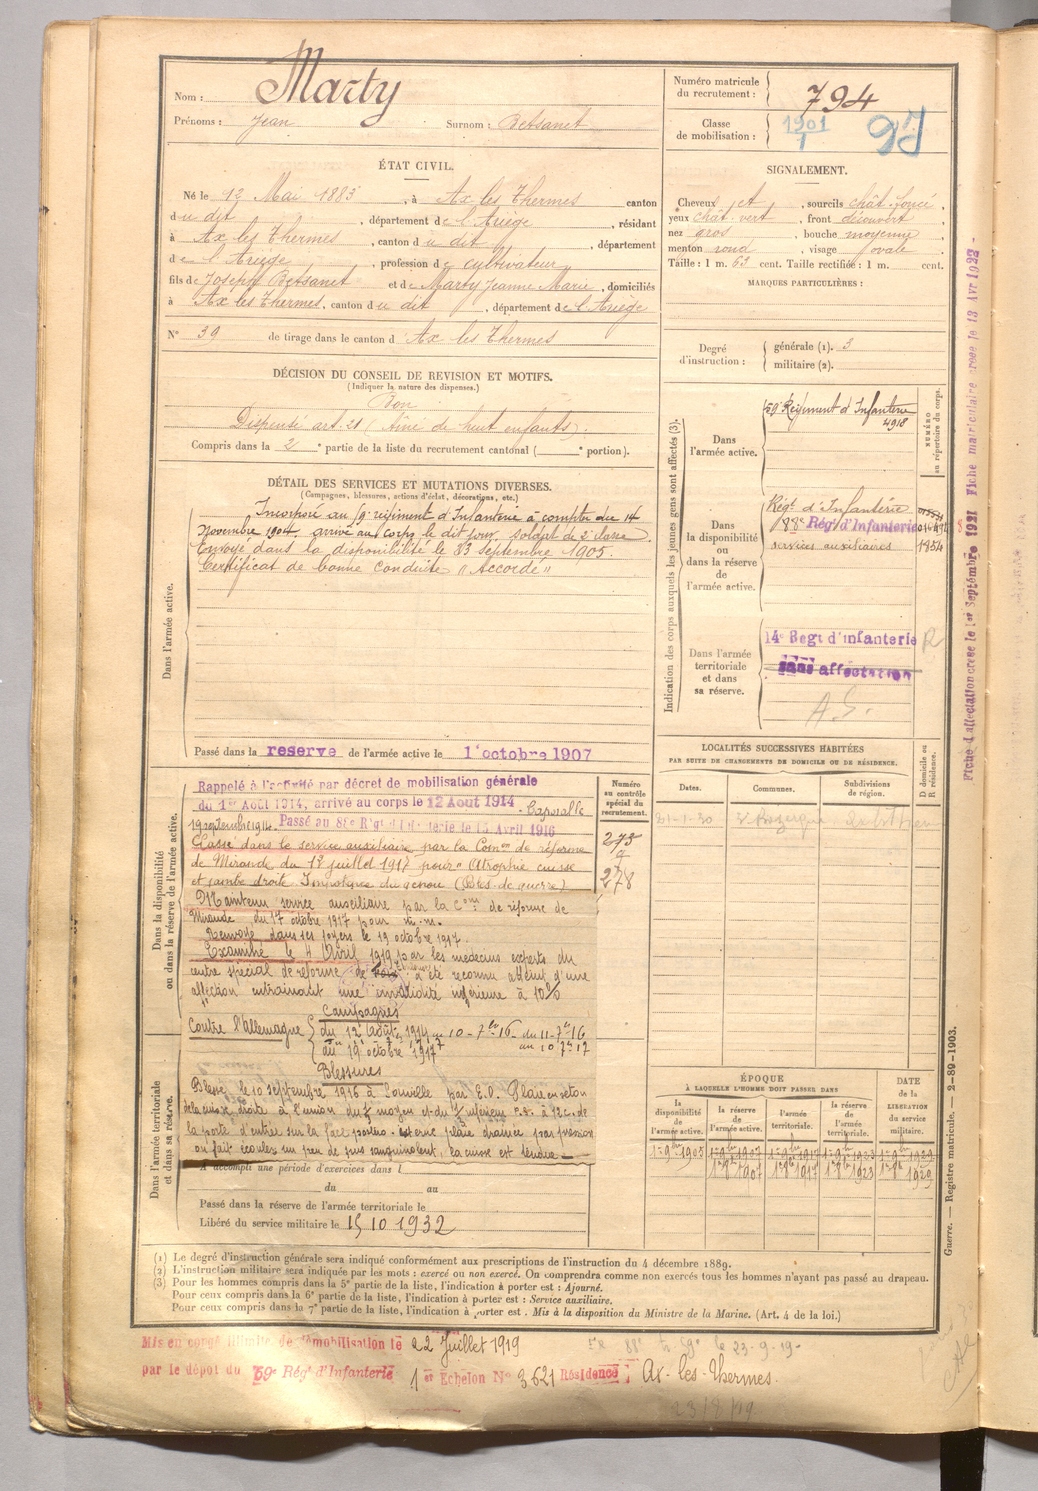 Nom : Marty
Prénoms : Jean Surnom : Betsanet
Numéro matricule du recrutement : 794
Classe de mobilisation : 1901
ÉTAT CIVIL.
Né le 12 Mai 1883, à Ax les Thermes canton
du dit, département de l'Ariège, résidant
à Ax les Thermes, canton du dit, département
de l'Ariège, profession de cultivateur
fils de Joseph Betsanet et de Marty Jeanne Marie, domiciliés
à Ax les Thermes, canton du dit, département de l'Ariège
N° 39 de tirage dans le canton d Ax les Thermes
SIGNALEMENT.
Cheveux et, sourcils chât. foncé,
yeux chât. vert, front découvert
nez gros, bouche moyenne,
menton rond, visage ovale
Taille : 1 m. 63 cent. Taille rectifiée : 1 m. cent.
MARQUES PARTICULIÈRES :
Degré d'instruction :
générale (1). 3
militaire (2).
DÉCISION DU CONSEIL DE REVISION ET MOTIFS.
(Indiquer la nature des dispenses.)
Bon
Dispensé art. 21 (Aîné de huit enfants).
Compris dans la 2e partie de la liste du recrutement cantonal ( e portion).
DÉTAIL DES SERVICES ET MUTATIONS DIVERSES.
(Campagnes, blessures, actions d'éclat, décorations, etc.)
Dans l'armée active.
Incorporé au 59e régiment d'Infanterie à compter du 14
Novembre 1904, arrivé au corps le dit jour, soldat de 2e classe.
Envoyé dans la disponibilité le 23 septembre 1905.
Certificat de bonne conduite "Accordé"
Passé dans la reserve de l'armée active le 1er octobre 1907
Indication des corps auxquels les jeunes gens sont affectés (3).
NUMÉRO au répertoire du corps.
Dans l'armée active.
59e Régiment d'Infanterie
4918
Dans la disponibilité ou dans la réserve de l'armée active.
Régt d'Infanterie
88e Régt d'Infanterie
services auxiliaires 1954
Dans l'armée territoriale et dans sa réserve.
14e Regt d'infanterie R
sans affectation
A.S.
Dans la disponibilité ou dans la réserve de l'armée active.
Rappelé à l'activité par décret de mobilisation générale
du 1er Août 1914, arrivé au corps le 12 Aout 1914. Caporal le
19 septembre 1914. Passé au 88e Régt d'Infanterie le 15 Avril 1916
Classé dans le service auxiliaire par la Comon de réforme
de Mirande du 12 juillet 1917 pour "Atrophie cuisse
et jambe droite. Impotence du genou (Bles. de guerre)
Maintenu service auxiliaire par la Com. de réforme de
Mirande du 17 octobre 1917 pour m. m.
Renvoyé dans ses foyers le 19 octobre 1917.
Examiné le 4 Avril 1919 par les médecins experts du
centre spécial de réforme de a été reconnu atteint d'une
affection entrainant une invalidité inférieure à 10%
Campagnes
Contre l'Allemagne du 12 Août 1914 au 10-7bre-16 du 11-7bre-16
au 19 octobre 1917 au 10 7bre 17
Blessures
Blessé le 10 septembre 1916 à par E.O. Plaie en seton
de la cuisse droite à l'union du moyen et du
la porte d'entrée sur la face plaie drainée par pression
on fait écouler un peu de pus sanguinolent, la cuisse est tendue
Numéro au contrôle spécial du recrutement.
273
278
Dans l'armée territoriale et dans sa réserve.
A accompli une période d'exercices dans l
du au
Passé dans la réserve de l'armée territoriale le
Libéré du service militaire le 15 10 1932
LOCALITÉS SUCCESSIVES HABITÉES
PAR SUITE DE CHANGEMENTS DE DOMICILE OU DE RÉSIDENCE.
Dates. Communes. Subdivisions de région. D domicile ou R résidence.
21-1-30
ÉPOQUE
À LAQUELLE L'HOMME DOIT PASSER DANS
DATE de la LIBÉRATION du service militaire.
la disponibilité de l'armée active. la réserve de l'armée active. l'armée territoriale. la réserve de l'armée territoriale.
1er 9bre 1905
1er 8bre 1907 1er 8bre 1917 1er 8bre 1923 1er 8bre 1929
(1) Le degré d'instruction générale sera indiqué conformément aux prescriptions de l'instruction du 4 décembre 1889.
(2) L'instruction militaire sera indiquée par les mots : exercé ou non exercé. On comprendra comme non exercés tous les hommes n'ayant pas passé au drapeau.
(3) Pour les hommes compris dans la 5e partie de la liste, l'indication à porter est : Ajourné.
Pour ceux compris dans la 6e partie de la liste, l'indication à porter est : Service auxiliaire.
Pour ceux compris dans la 7e partie de la liste, l'indication à porter est : Mis à la disposition du Ministre de la Marine. (Art. 4 de la loi.)
Guerre. — Registre matricule. — 2-89-1903.
Fiche d'affectation creee le 1er Septembre 1921 Fiche matriculaire creee le 13 Avr 1922 -
Mis en congé illimité de démobilisation le 22 Juillet 1919
par le dépot du 59e Régt d'Infanterie 1er Echelon N° 3621 Résidence Ax-les-Thermes.
88e 59e le 23-9-19-